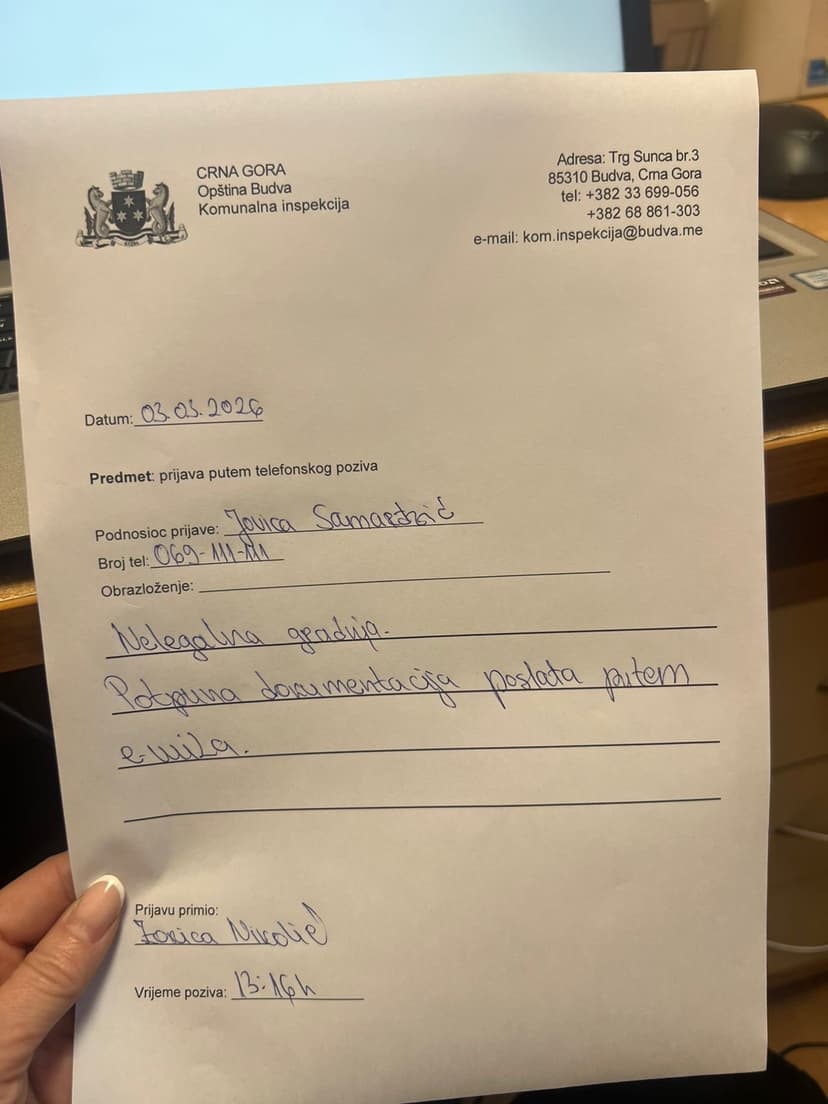 CRNA GORA
Opština Budva
Komunalna inspekcija
Adresa: Trg Sunca br.3
85310 Budva, Crna Gora
tel: +382 33 699-056
+382 68 861-303
e-mail: kom.inspekcija@budva.me
Datum: 03.03.2026
Predmet: prijava putem telefonskog poziva
Podnosioc prijave: Jovica Samardzić
Broj tel: 069-111-111
Obrazloženje:
Nelegalna gradnja.
Potpuna dokumentacija poslata putem
e-mila.
Prijavu primio:
Zorica Nikolić
Vrijeme poziva: 13:16h